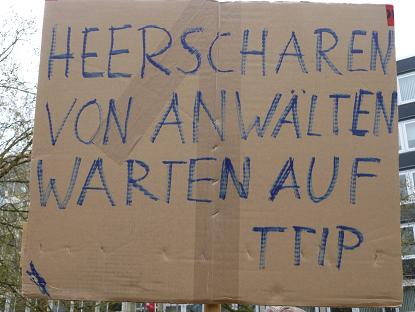 HEERSCHAREN
VON ANWÄLTEN
WARTEN AUF
TTIP